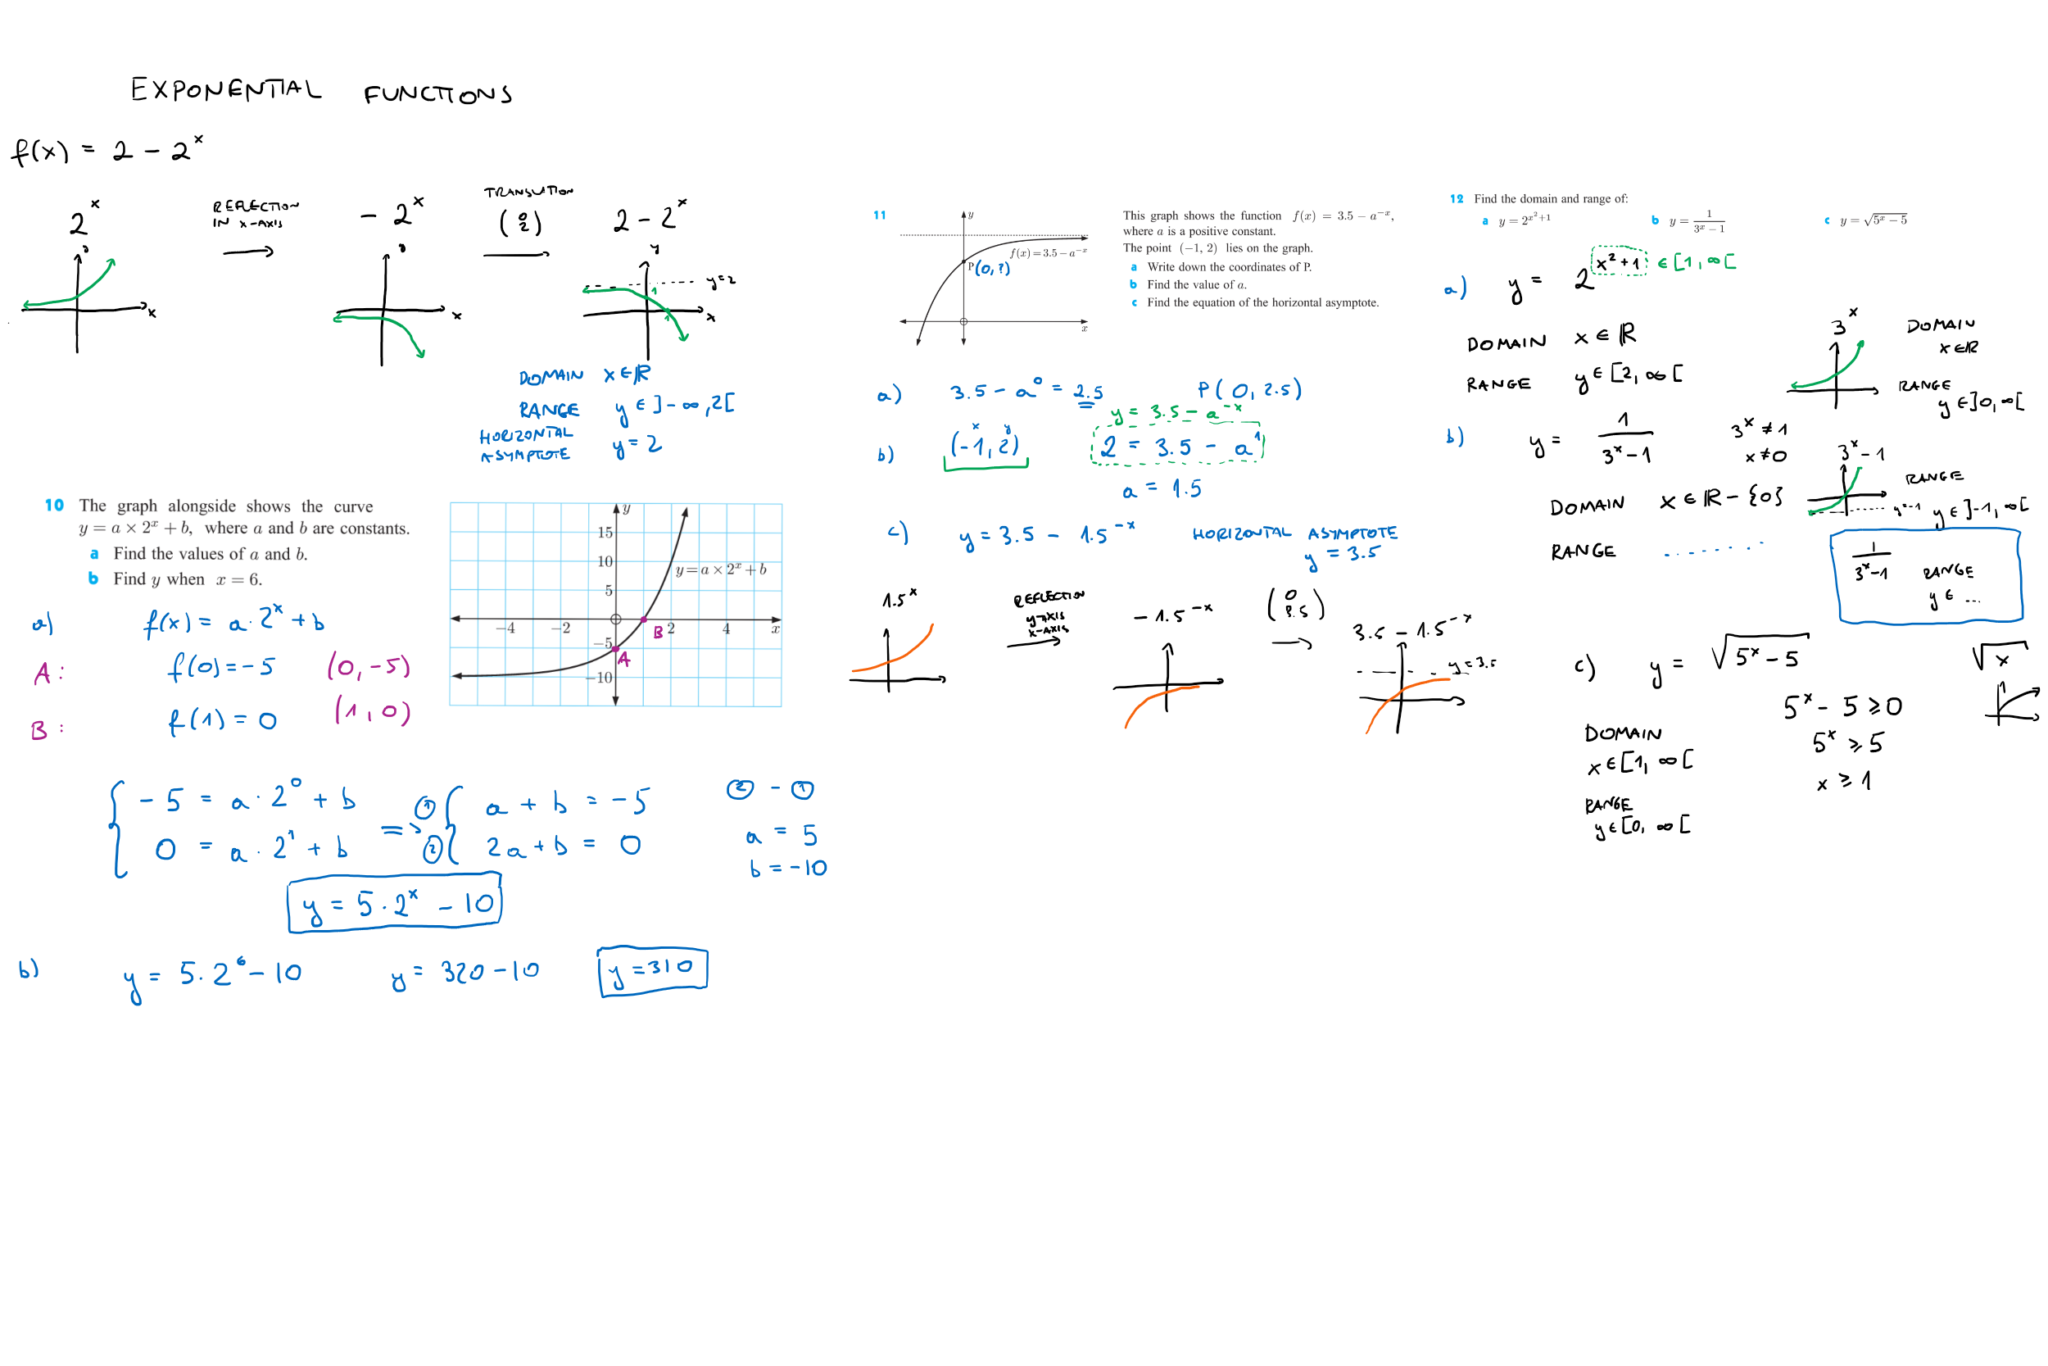 EXPONENTIAL FUNCTIONS
f(x) = 2 - 2^x
2^x
REFLECTION
IN x-AXIS
- 2^x
TRANSLATION
(0 2)
2 - 2^x
x
x
y
y=2
1
1
x
DOMAIN x ∈ ℝ
RANGE y ∈ ]-∞, 2[
HORIZONTAL
ASYMPTOTE y = 2
10 The graph alongside shows the curve
y = a × 2^x + b, where a and b are constants.
a Find the values of a and b.
b Find y when x = 6.
y
15
10
5
-4 -2 2 4 x
-5
-10
y = a × 2^x + b
A
B
a) f(x) = a · 2^x + b
A: f(0) = -5 (0, -5)
B: f(1) = 0 (1, 0)
-5 = a · 2^0 + b
0 = a · 2^1 + b
=>
① a + b = -5
② 2a + b = 0
② - ①
a = 5
b = -10
y = 5 · 2^x - 10
b) y = 5 · 2^6 - 10 y = 320 - 10 y = 310
11
y
f(x) = 3.5 - a^-x
P(0, ?)
x
This graph shows the function f(x) = 3.5 - a^-x,
where a is a positive constant.
The point (-1, 2) lies on the graph.
a Write down the coordinates of P.
b Find the value of a.
c Find the equation of the horizontal asymptote.
a) 3.5 - a^0 = 2.5 P(0, 2.5)
y = 3.5 - a^-x
x y
b) (-1, 2) 2 = 3.5 - a^1
a = 1.5
c) y = 3.5 - 1.5^-x HORIZONTAL ASYMPTOTE
y = 3.5
1.5^x
REFLECTION
y-AXIS
x-AXIS
- 1.5^-x
(0 3.5)
3.5 - 1.5^-x
y = 3.5
12 Find the domain and range of:
a y = 2^(x^2+1) b y = 1/(3^x - 1) c y = √(5^x - 5)
a) y = 2^(x^2+1) ∈ [1, ∞[
DOMAIN x ∈ ℝ
RANGE y ∈ [2, ∞[
3^x
DOMAIN
x ∈ ℝ
RANGE
y ∈ ]0, ∞[
b) y = 1/(3^x - 1) 3^x ≠ 1
x ≠ 0
3^x - 1
RANGE
y=-1 y ∈ ]-1, ∞[
DOMAIN x ∈ ℝ - {0}
RANGE ........
1/(3^x - 1) RANGE
y ∈ ...
c) y = √(5^x - 5)
√x
5^x - 5 ≥ 0
5^x ≥ 5
x ≥ 1
DOMAIN
x ∈ [1, ∞[
RANGE
y ∈ [0, ∞[